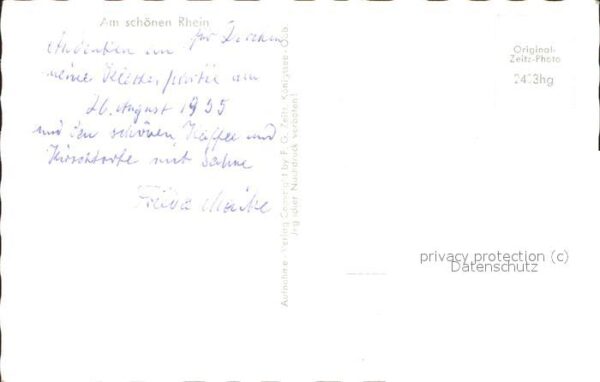 Am schönen Rhein
für
Andenken an
meine
26. August 1955
und den schönen Kaffee und
Kirschtorte mit Sahne
Frieda
Original-
Zeitz-Photo
2423hg
Aufnahme u. Verlag Copyright by F. G. Zeitz, Königssee-Obb.
Nachdruck verboten!
privacy protection (c)
Datenschutz